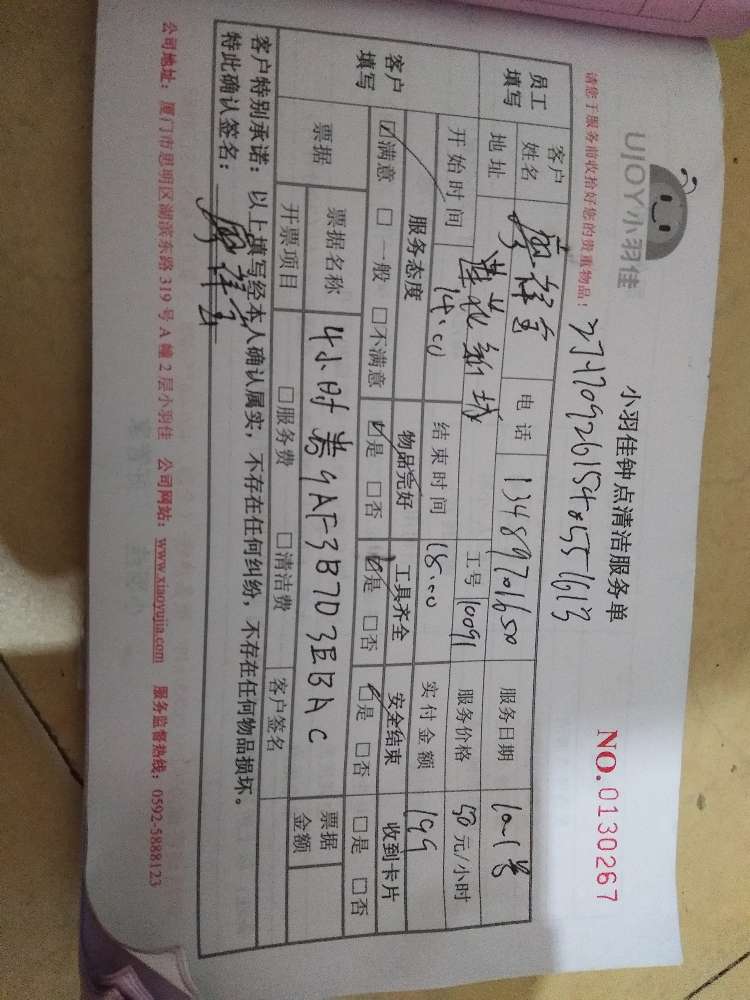 UJOY小羽佳
小羽佳钟点清洁服务单
NO.0130267
请您于服务前收拾好您的贵重物品！
员工填写 客户姓名 电话 13489701650 服务日期
地址 莲花新城 工号 10091 服务价格 50 元/小时
客户填写 开始时间 14:00 结束时间 18:00 实付金额 199
服务态度 物品完好 工具齐全 安全结束 收到卡片
☑满意 □一般 □不满意 ☑是 □否 ☑是 □否 ☑是 □否 □是 □否
票据 票据名称 4小时券9AF3B7D3EBAC 票据金额
开票项目 □服务费 □清洁费 客户签名
客户特别承诺：以上填写经本人确认属实，不存在任何纠纷，不存在任何物品损坏。
特此确认签名：
公司地址：厦门市思明区湖滨东路319号A幢2层小羽佳 公司网站：www.xiaoyujia.com 服务监督热线：0592-5888123